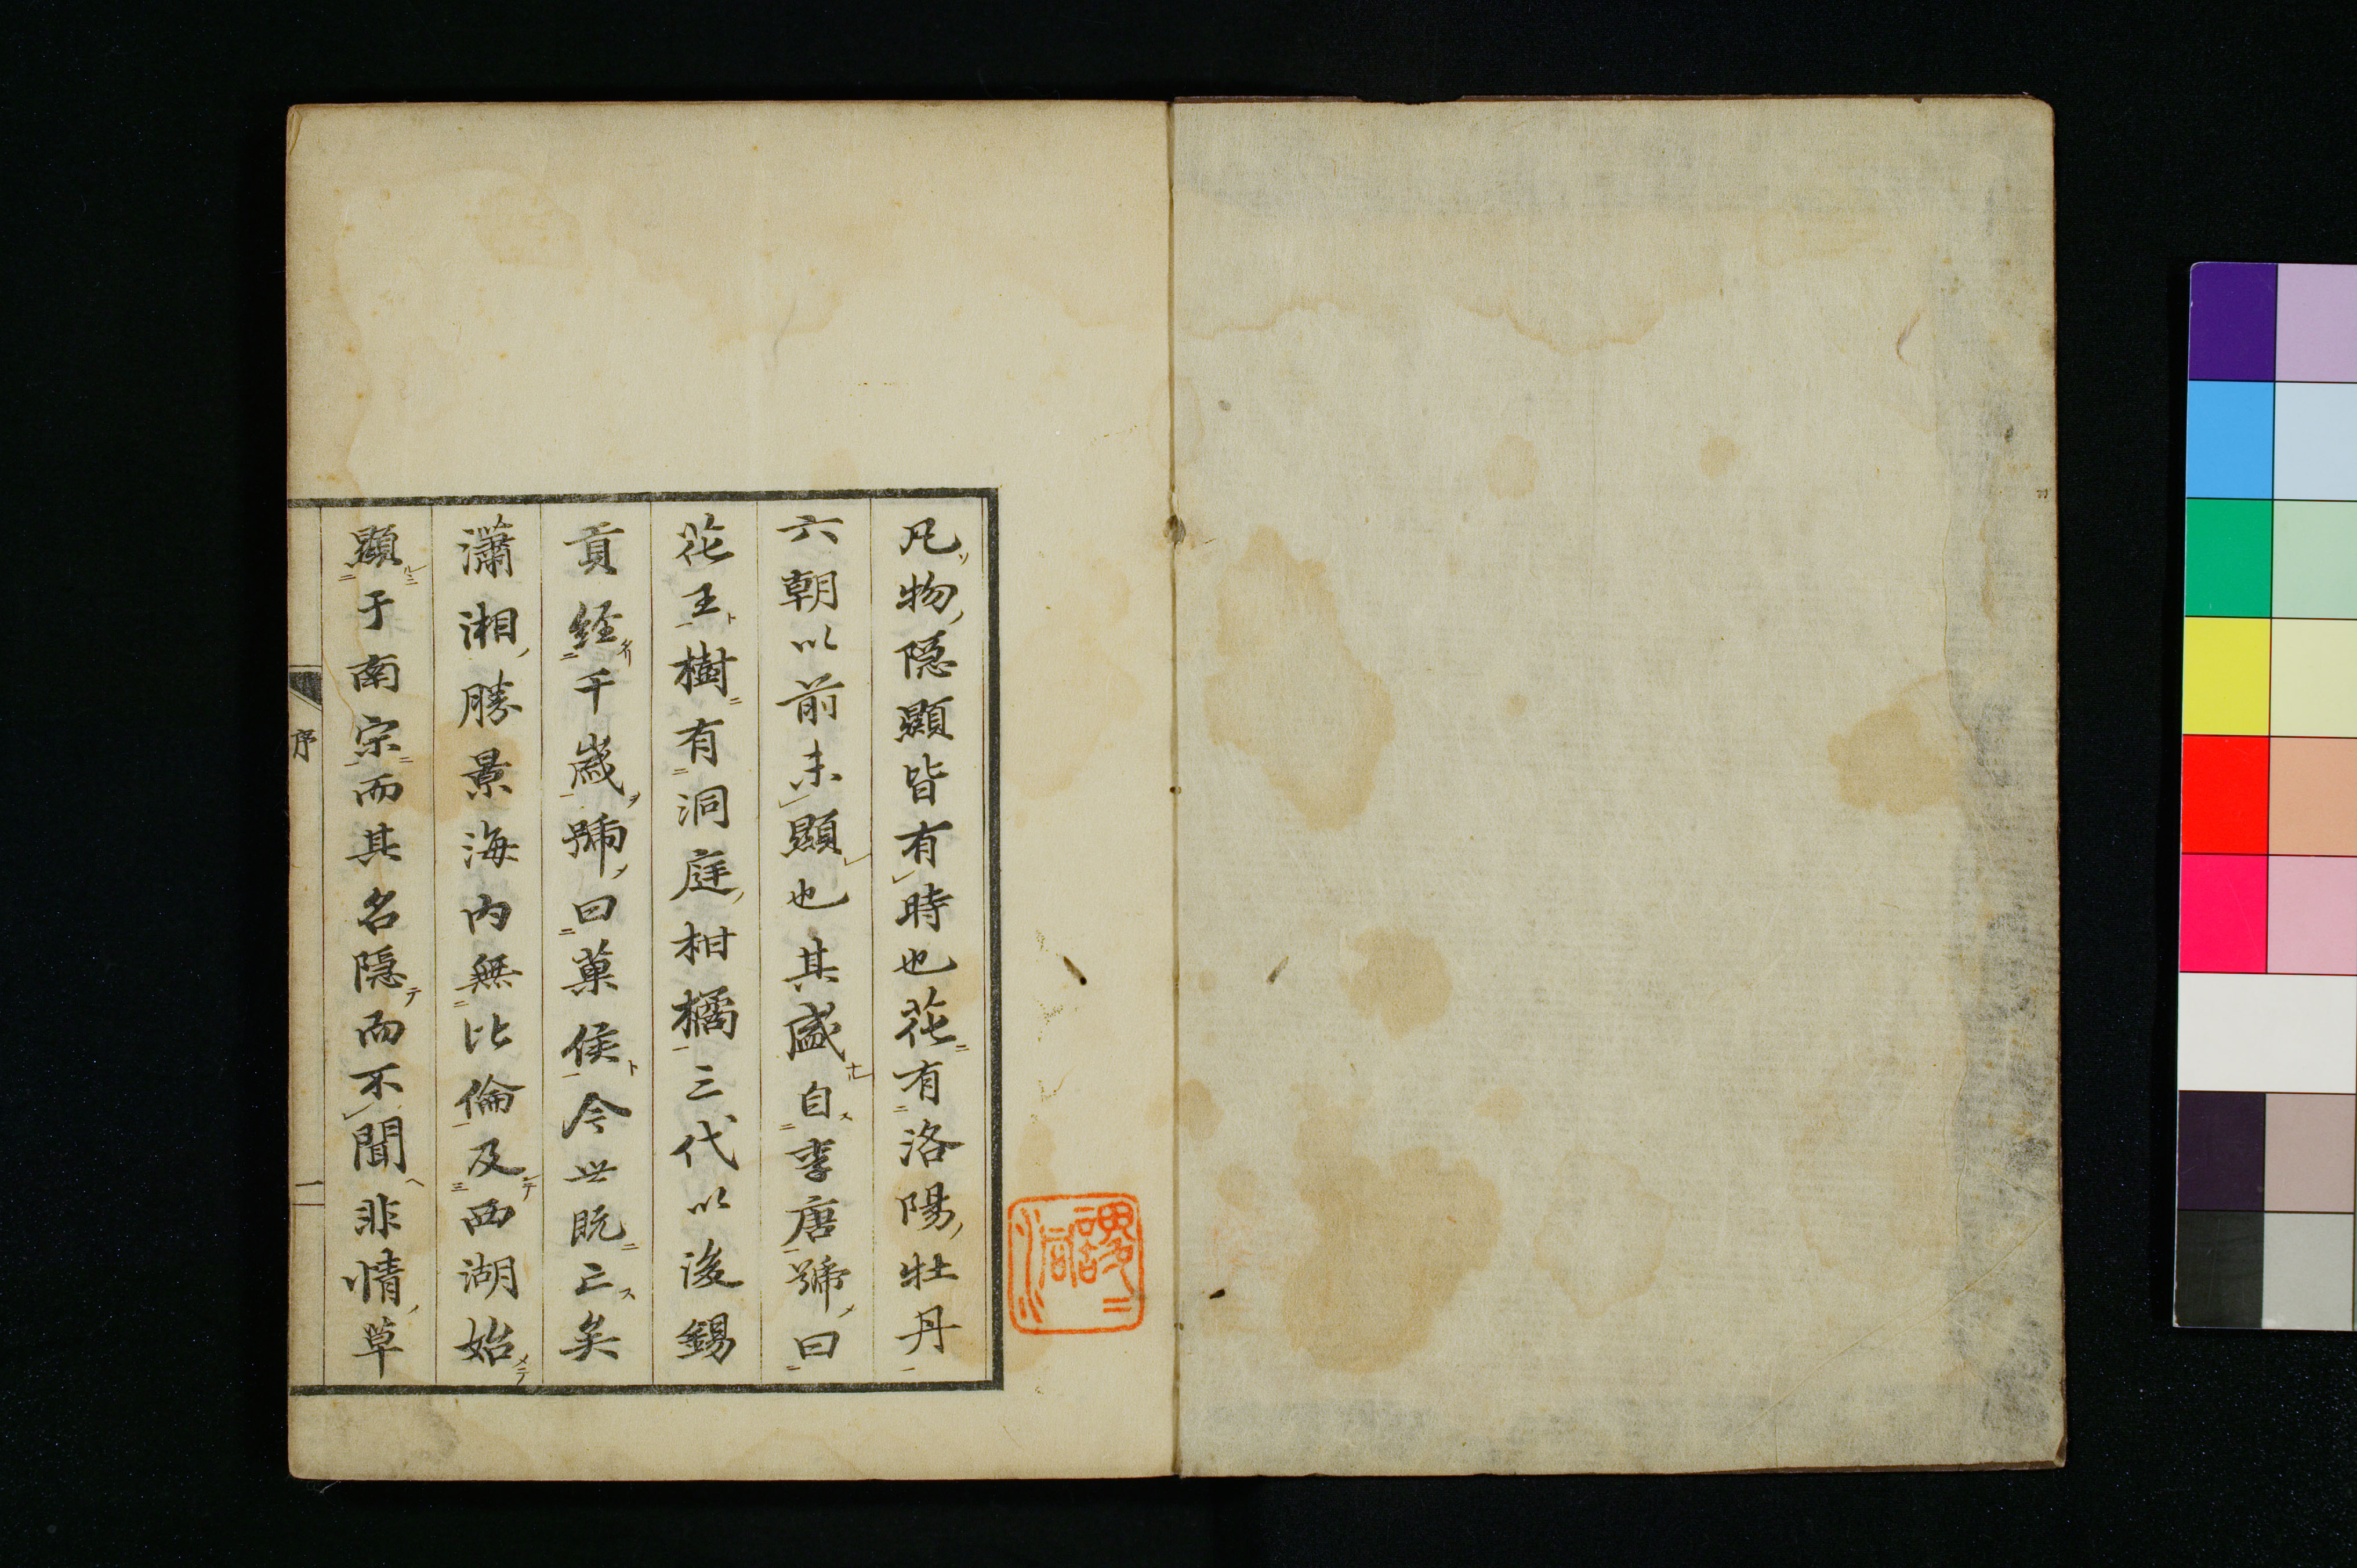 凡物隠顯皆有時也花有洛陽牡丹
六朝以前未顯也其盛自李唐號曰
花王樹有洞庭柑橘三代以後錫
貢経千歳號曰菓侯今世既亡矣
瀟湘勝景海内無比倫及西湖始
顯于南宗而其名隠而不聞非情草
序
一